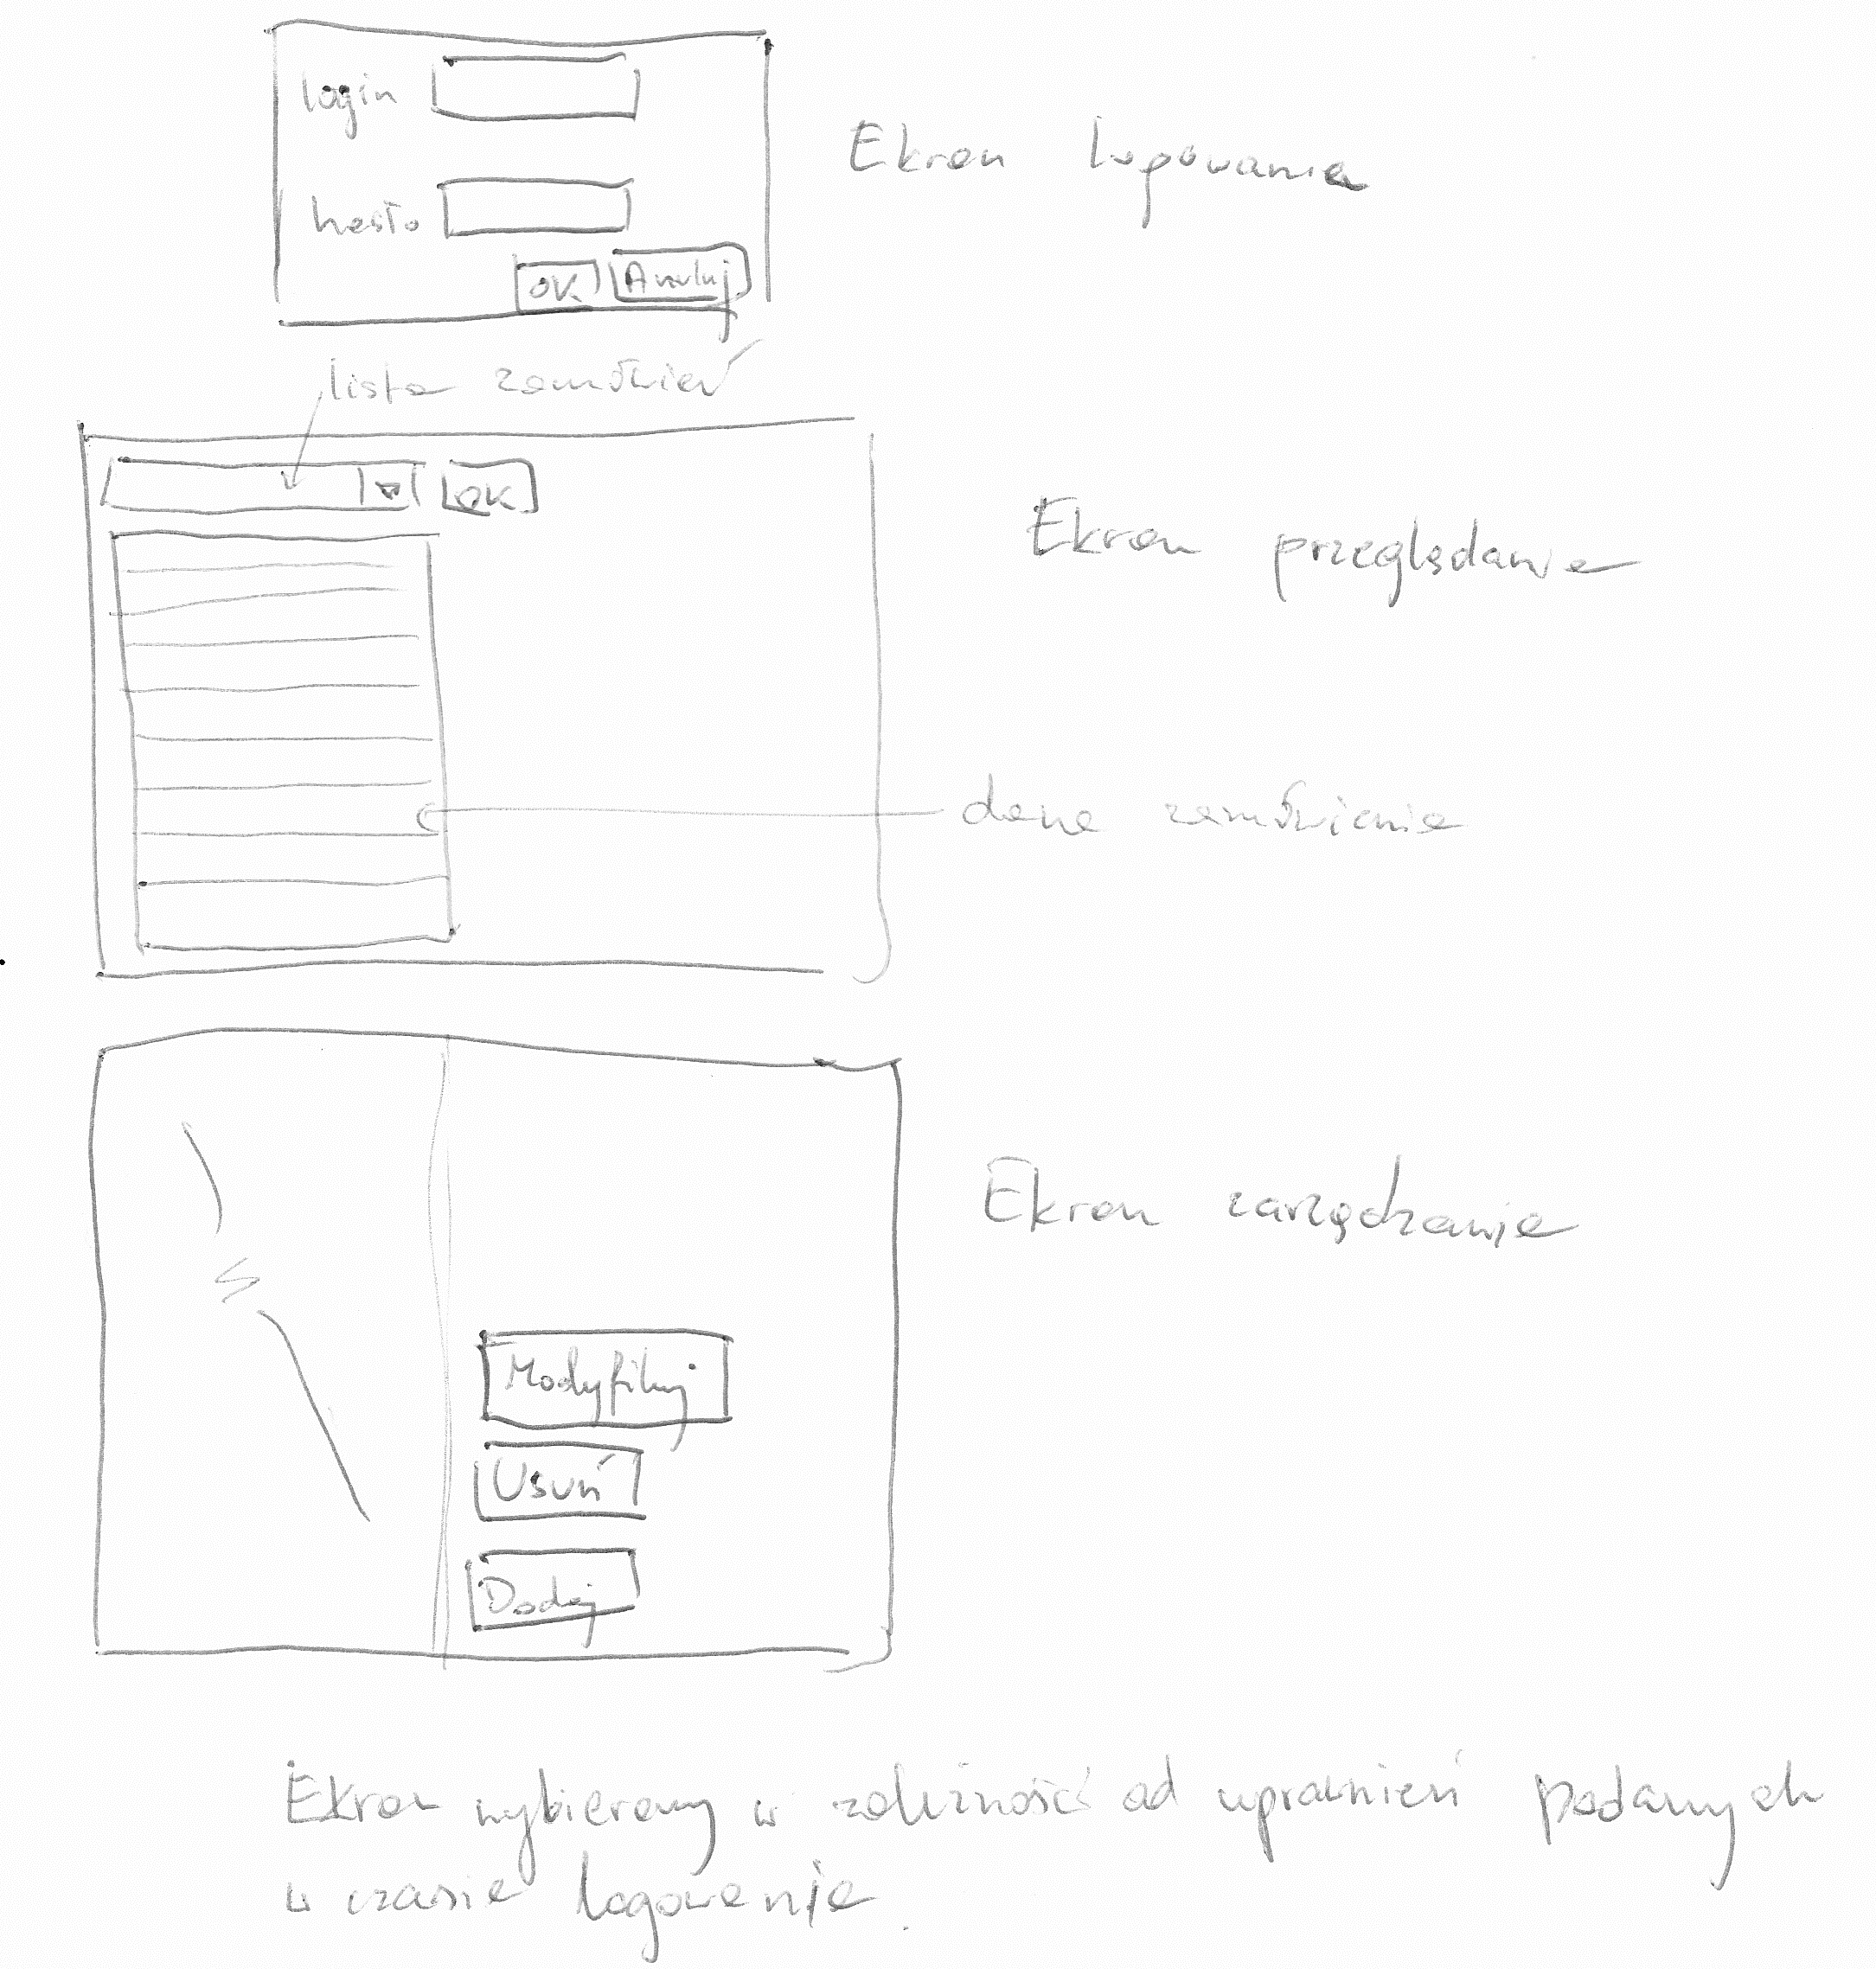 login
Ekran logowania
hasło
OK Anuluj
lista zamówień
OK
Ekran przeglądania
dane zamówienia
Ekran zarządzania
Modyfikuj
Usuń
Dodaj
Ekran wybierany w zależność od uprawnień podanych
w czasie logowanie.